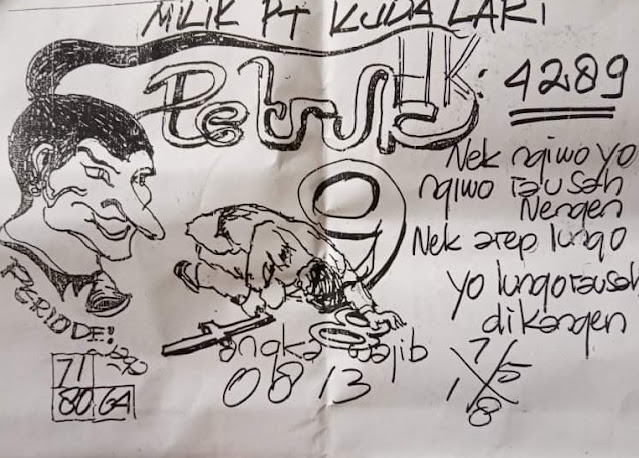 MILIK PT KUDA LARI
Petruk
HK: 4289
Nek ngiwo yo
ngiwo rausah
Nengen
Nek arep lungo
yo lungo rausah
dikangen
9
PERIODE:
71
80 64
angka wajib
0813
7
1 5
8